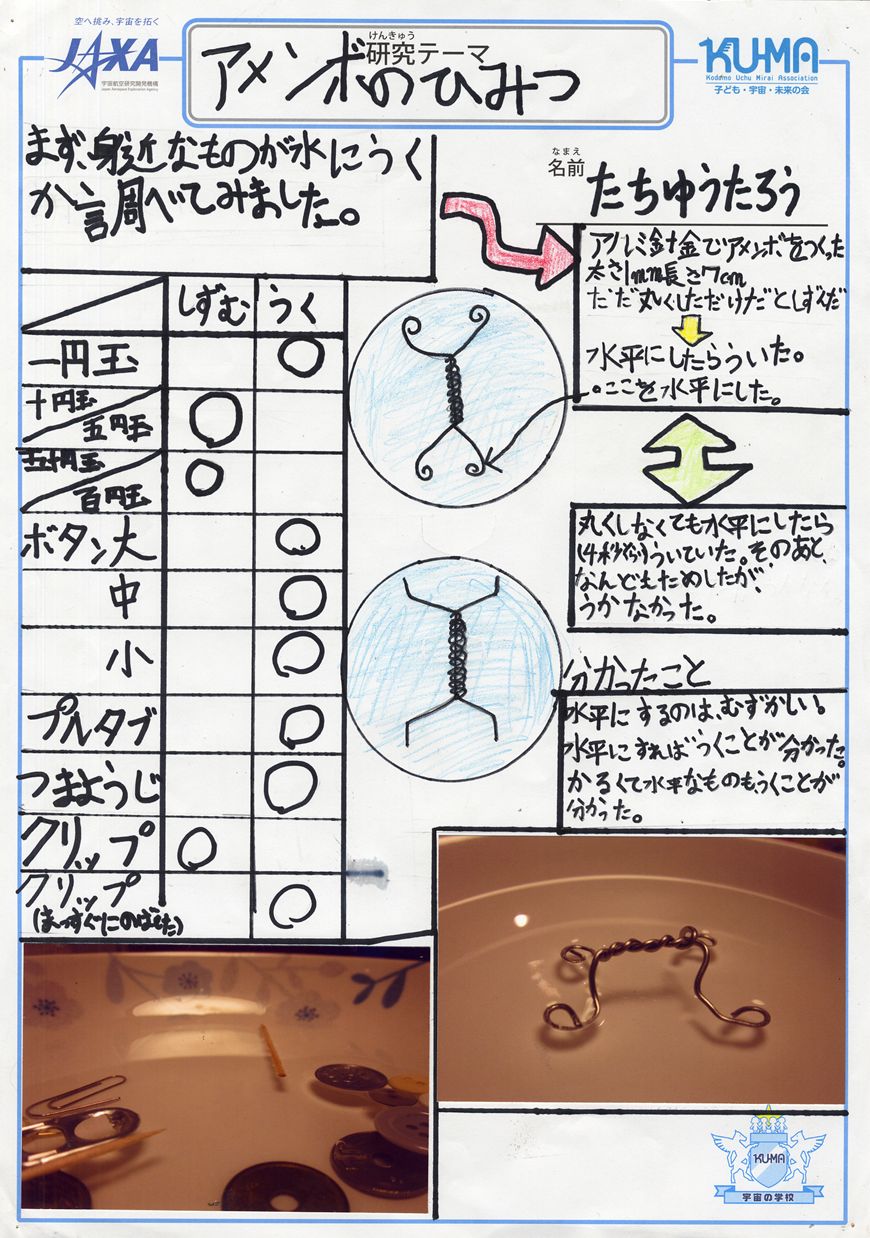 空へ挑み、宇宙を拓く
JAXA
宇宙航空研究開発機構
Japan Aerospace Exploration Agency
けんきゅう
研究テーマ
アメンボのひみつ
KU-MA
Kodomo Uchu Mirai Association
子ども・宇宙・未来の会
まず、身近なものが水にうく
か調べてみました。
なまえ
名前
たちゆうたろう
アルミ針金でアメンボをつくった
太さ1mm長さ7cm
ただ丸くしただけだとしずくだ
水平にしたらういた。
。ここを水平にした。
しずむ うく
一円玉 ○
十円玉
五円玉 ○
五十円玉
百円玉 ○
ボタン大 ○
中 ○
小 ○
プルタブ ○
つまようじ ○
クリップ ○
クリップ
(まっすぐにのばした) ○
丸くしなくても水平にしたら
14秒ぐらいういていた。そのあと、
なんどもためしたが、
うかなかった。
分かったこと
水平にするのは、むずかしい。
水平にすればうくことが分かった。
かるくて水平なものもうくことが
分かった。
KU-MA
宇宙の学校